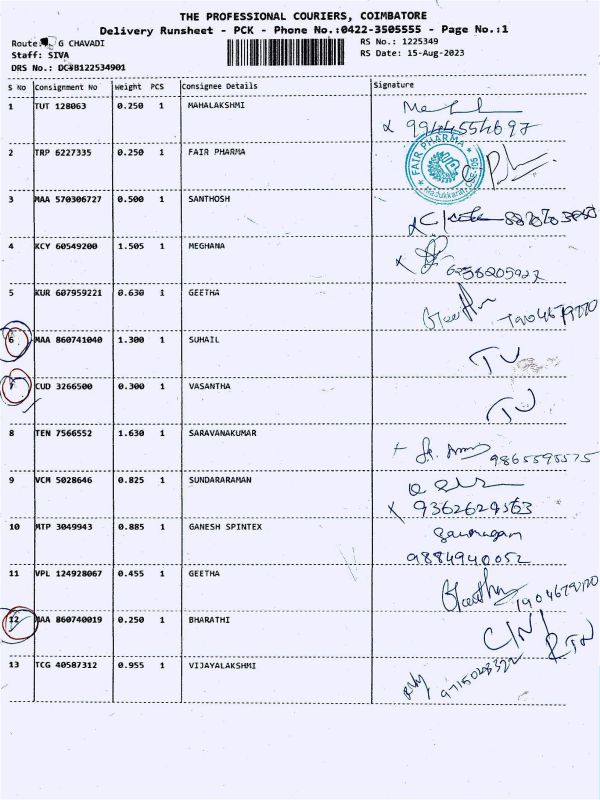 THE PROFESSIONAL COURIERS, COIMBATORE
Delivery Runsheet - PCK - Phone No.:0422-3505555 - Page No.:1
Route: G CHAVADI
RS No.: 1225349
Staff: SIVA
RS Date: 15-Aug-2023
DRS No.: DCSB122534901
S No Consignment No Weight PCS Consignee Details Signature
1 TUT 128063 0.250 1 MAHALAKSHMI
2 TRP 6227335 0.250 1 FAIR PHARMA
FAIR PHARMA
3 MAA 570306727 0.500 1 SANTHOSH
4 KCY 60549200 1.505 1 MEGHANA
5 KUR 607959221 0.630 1 GEETHA Geetha
6 MAA 860741040 1.300 1 SUHAIL
7 CUD 3266500 0.300 1 VASANTHA
8 TEN 7566552 1.630 1 SARAVANAKUMAR
9865595575
9 VCM 5028646 0.825 1 SUNDARARAMAN
9362629363
10 MTP 3049943 0.885 1 GANESH SPINTEX
9884940052
11 VPL 124928067 0.455 1 GEETHA Geetha
12 MAA 860740019 0.250 1 BHARATHI C/N/ RTN
13 TCG 40587312 0.955 1 VIJAYALAKSHMI